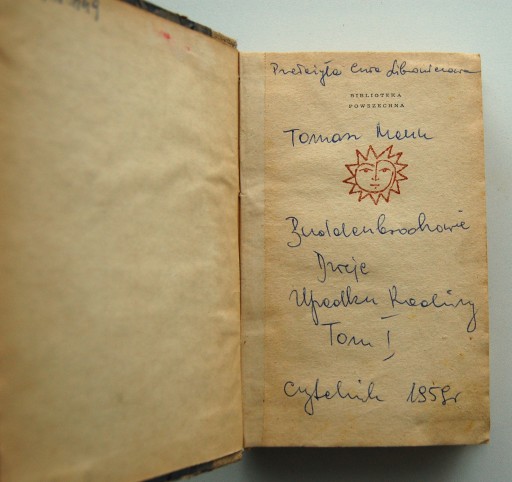 Przełożyła Ewa Librowiczowa
BIBLIOTEKA
POWSZECHNA
Tomasz Mann
Buddenbrookowie
Dzieje
Upadku Rodziny
Tom I
Czytelnik 1959r